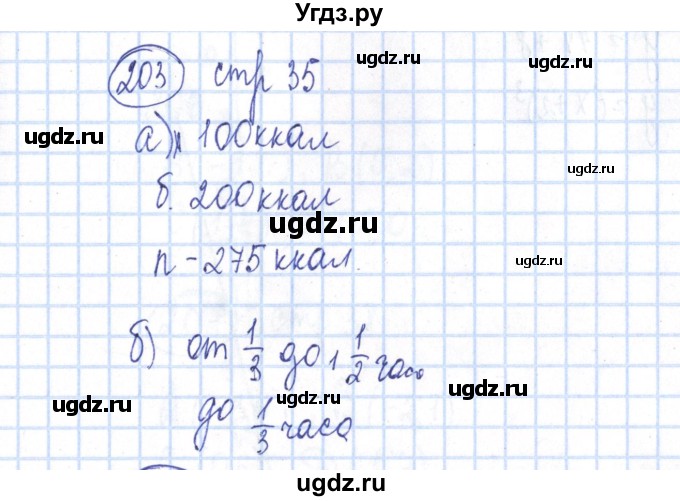 Угдз.ру
203 стр 35
а) л 100 ккал
б. 200 ккал
п - 275 ккал.
б) от 1/3 до 1 1/2 часа
до 1/3 часа
ugdz.ru
ugdz.ru
ugdz.ru
ugdz.ru
ugdz.ru
ugdz.ru
ugdz.ru
ugdz.ru
ugdz.ru
ugdz.ru